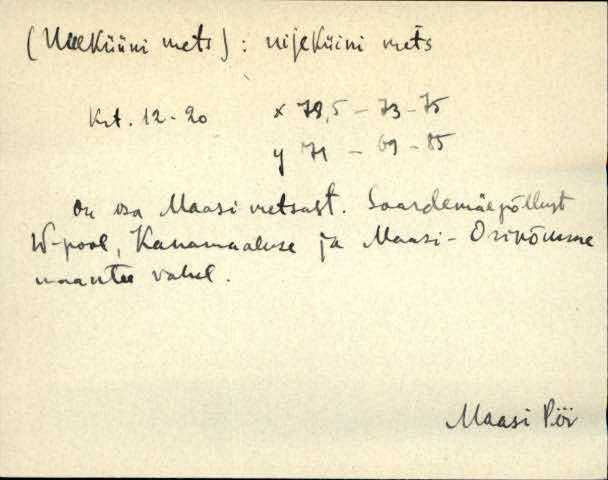 (Uueküüni mets) : uijeküini mets
Krt. 12-20 x 78,5 – 73 – 75
y 71 – 69 – 85
On osa Maasi metsast. Saardemäepõllust
W-pool, Kanamaaluse ja Maasi-Orinõmme
maantee vahel.
Maasi Pöi